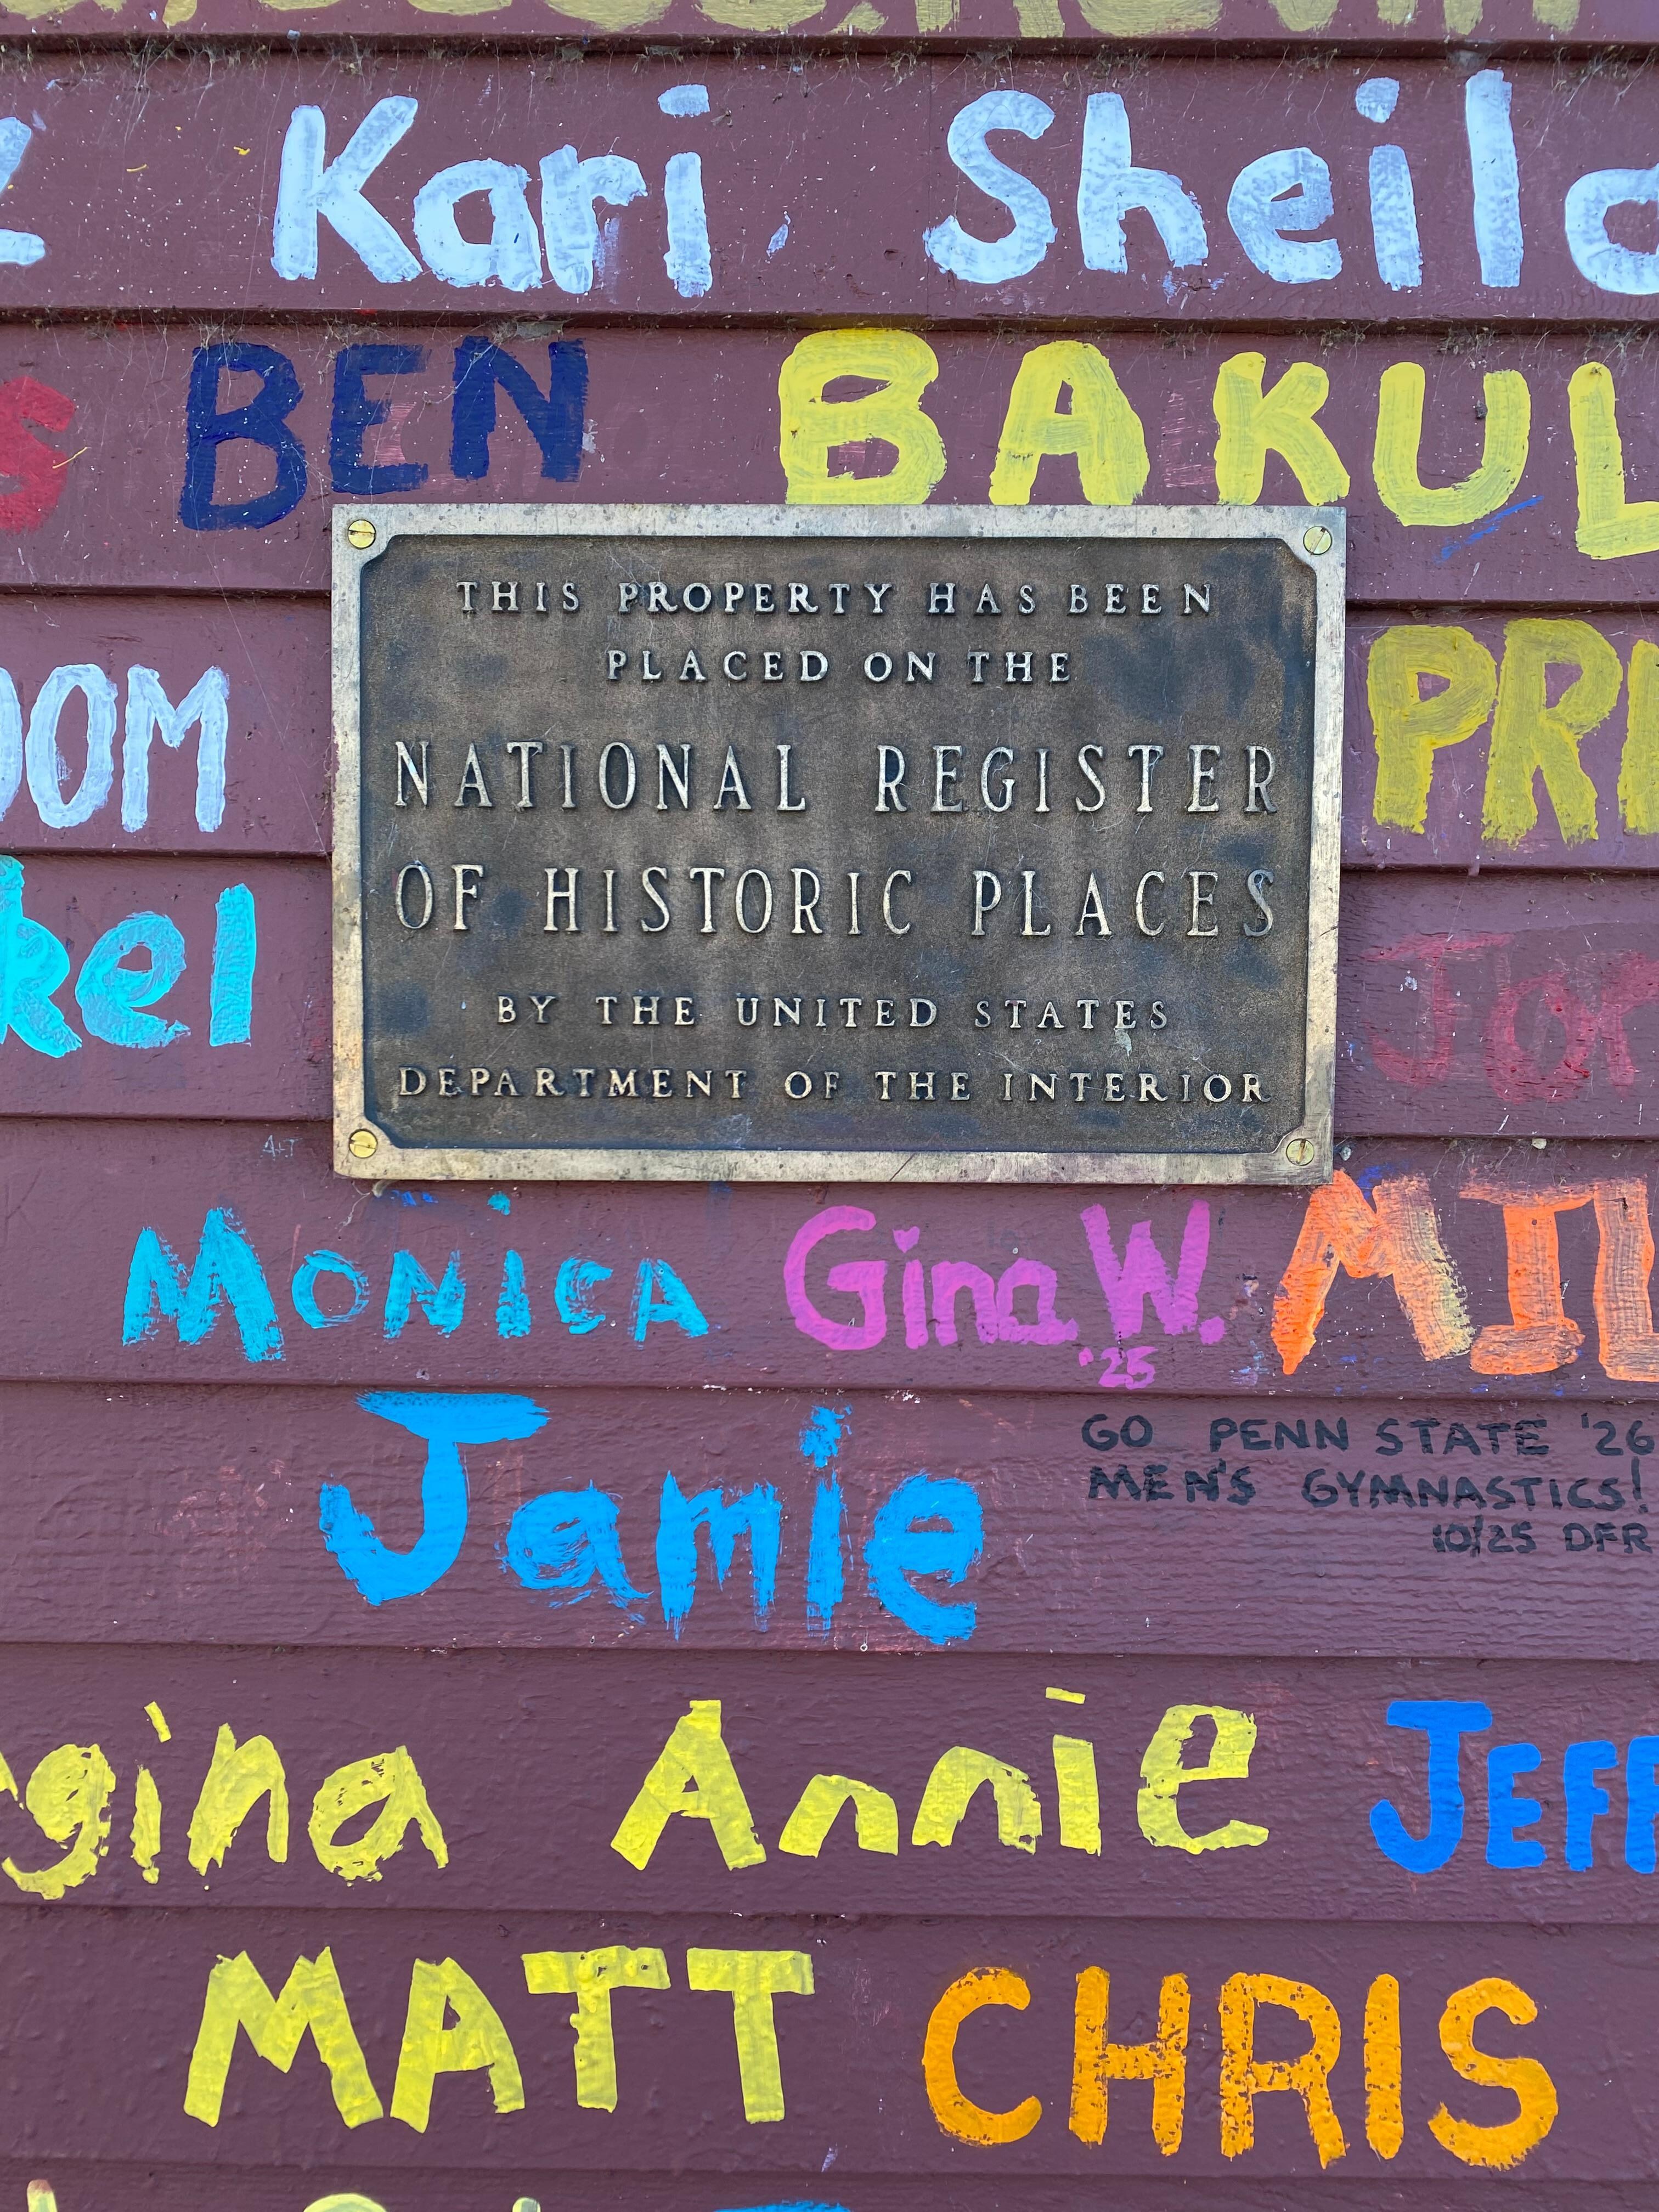 Kari Sheila
S BEN BAKUL
THIS PROPERTY HAS BEEN
PLACED ON THE
NATIONAL REGISTER
OF HISTORIC PLACES
BY THE UNITED STATES
DEPARTMENT OF THE INTERIOR
OOM
PRI
kel
Jor
A+T
MONiCA Gina W. MIL
'25
Jamie
GO PENN STATE '26
MEN'S GYMNASTICS!
10/25 DFR
gina Annie JEFF
MATT CHRIS